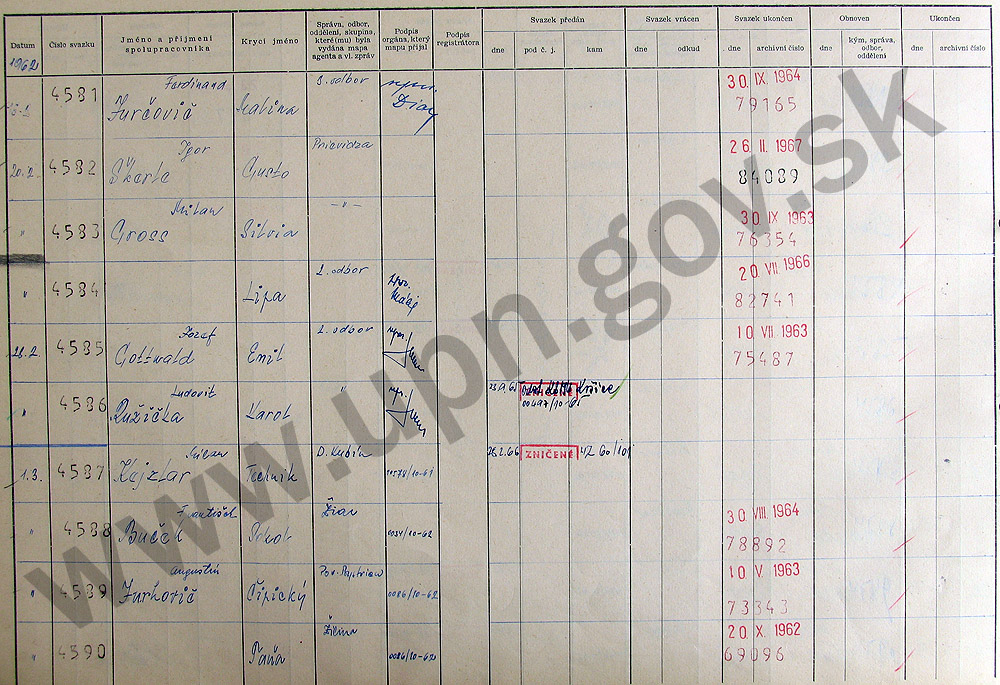 Datum
Číslo svazku
Jméno a příjmení
spolupracovníka
Krycí jméno
Správa, odbor,
oddělení, skupina,
které(mu) byla
vydána mapa
agenta a vl. zpráv
Podpis
orgána, který
mapu přijal
Podpis
registrátora
Svazek předán
dne
pod č. j.
kam
Svazek vrácen
dne
odkud
Svazek ukončen
dne
archivní číslo
Obnoven
dne
kým, správa,
odbor,
oddělení
Ukončen
dne
archivní číslo
1962
4581
Ferdinand
Jurčovič
Malina
odbor
30. IX. 1964
79165
20.2.
4582
Igor
Škerle
Gusto
Prievidza
26. II. 1967
84089
"
4583
Milan
Gross
Silvia
- " -
30 IX 1963
76354
"
4584
Lipa
odbor
20. VII. 1966
82741
28.2.
4585
Jozef
Gottwald
Emil
odbor
10 VII. 1963
75487
"
4586
Ludovit
Ružička
Karol
"
ZNIČENÉ
Košice
1.3.
4587
Technik
D. Kubín
28.2.66
ZNIČENÉ
"
4588
František
Buček
Žiar
30. VIII. 1964
78892
"
4589
Augustín
Čipický
0086/10-62
10 V. 1963
73343
"
4590
Žilina
0086/10-62
20 X. 1962
69096
www.upn.gov.sk